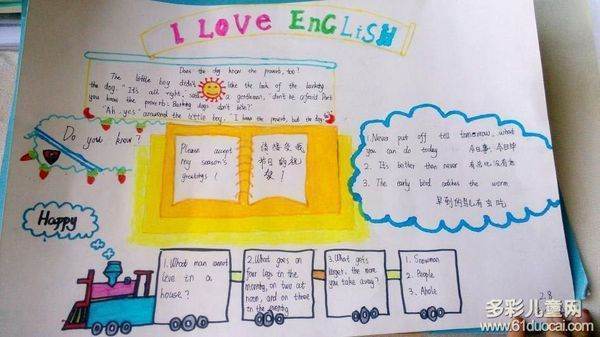 I LOVE ENGLISH
Does the dog know the proverb, too?
The little boy didn't like the look of the barking
the dog. "It's all right," said a gentleman, "don't be afraid. Don't
you know the proverb: Barking dogs don't bite?"
"Ah, yes," answered the little boy. "I know the proverb, but the dog
Do you know?
Please accept
my season's
greetings!
请接受我
节日的祝
贺!
1. Never put off tell tomorrow, what
you can do today 今日事,今日毕
2. It's better than never 有总比没有好
3. The early bird catches the worm
早到的鸟有虫吃
Happy
1. What man cannot
live in a
house?
2. What goes on
four legs in the
morning, on two at
noon, and on three
in the evening
3. What gets
larger, the more
you take away?
1. Snowman
2. People
3. Ahole
多彩儿童网
www.61duocai.com